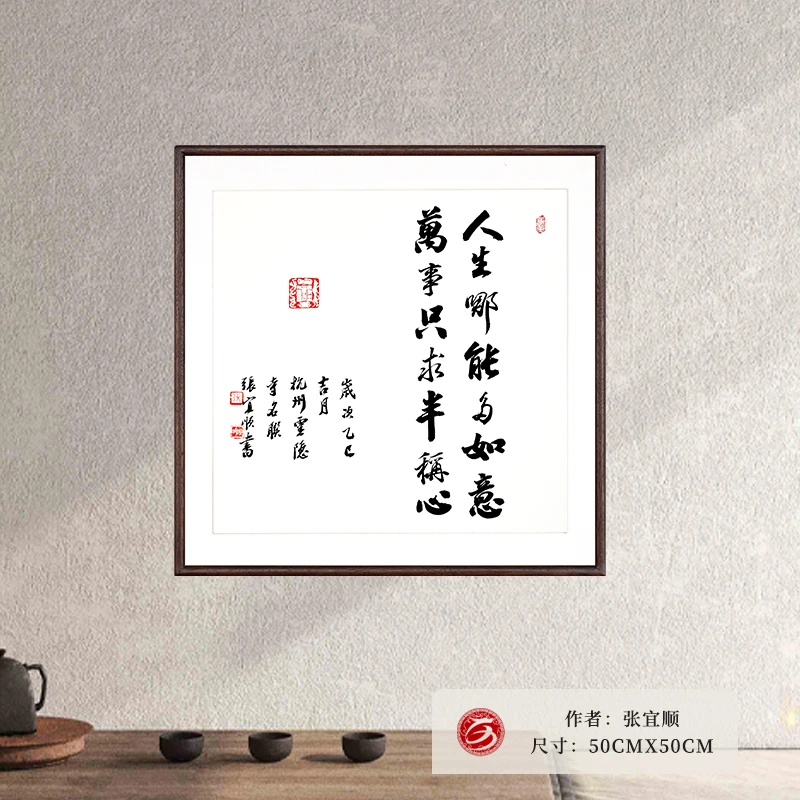 人生哪能多如意
萬事只求半稱心
歲次乙巳
吉月
杭州靈隱
寺名聯
張宜順書
作者：张宜顺
尺寸：50CMX50CM